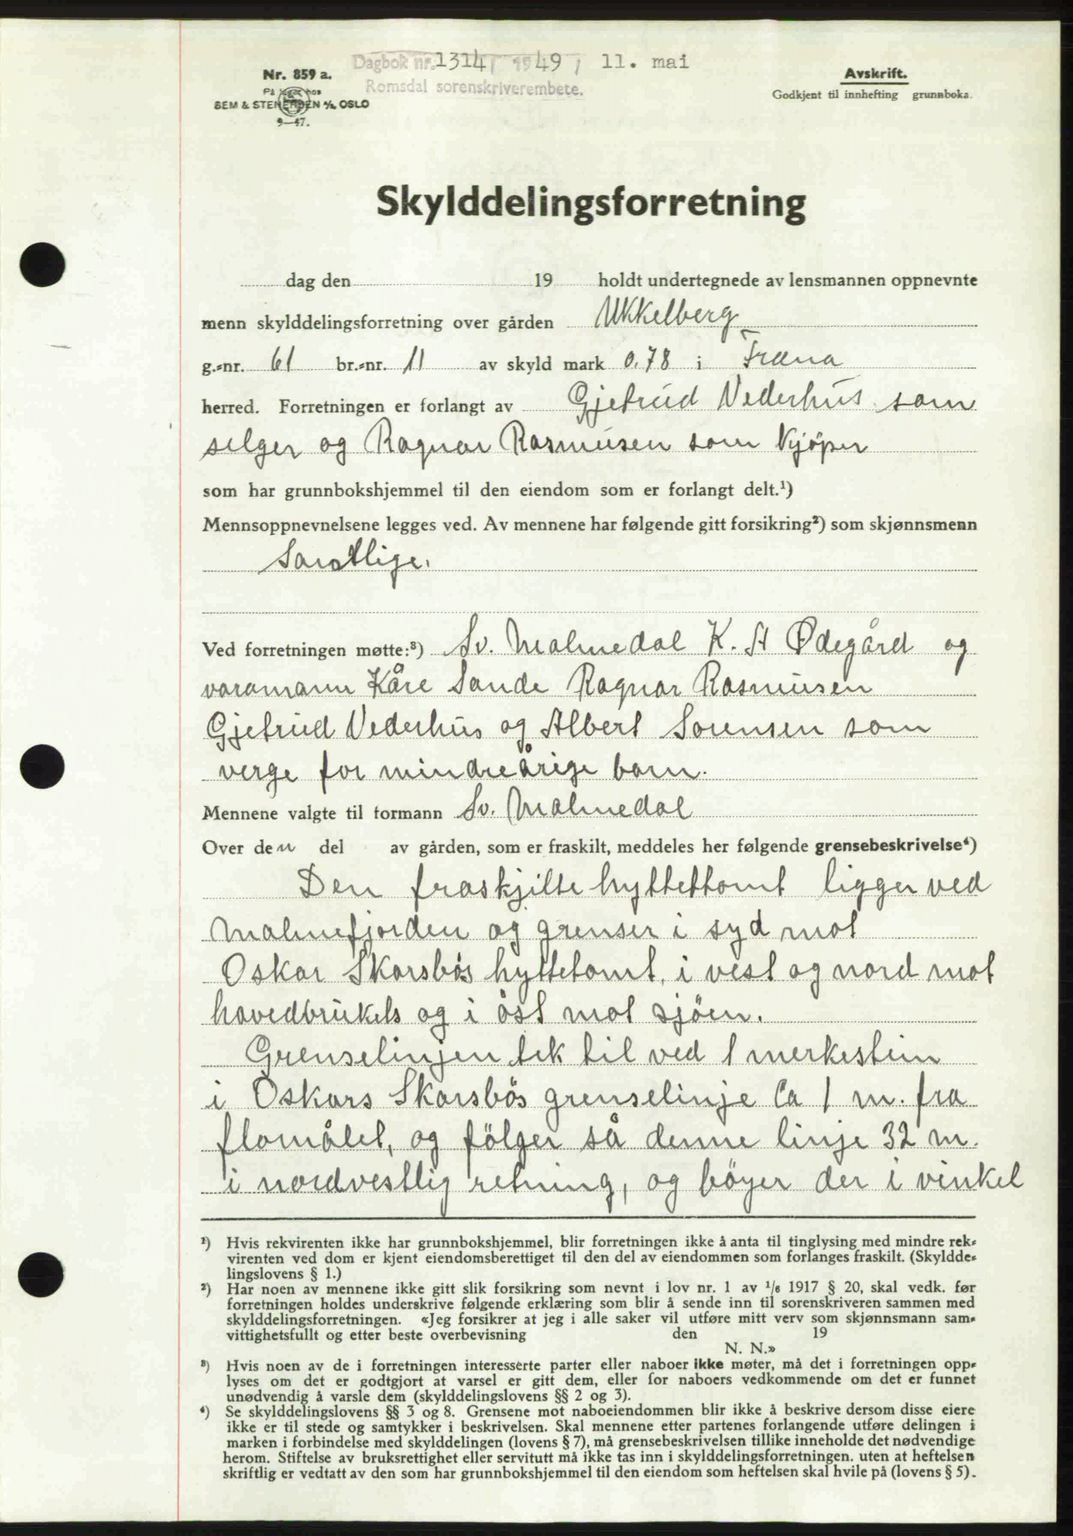 Dagbok nr. 1314 / 1949 / 11. mai
Romsdal sorenskriverembete.
Nr. 859 a.
På lager hos
SEM & STENERSEN A/S, OSLO
9—47.
Avskrift.
Godkjent til innhefting grunnboka.
Skylddelingsforretning
dag den 19 holdt undertegnede av lensmannen oppnevnte
menn skylddelingsforretning over gården Ukkelberg
g.-nr. 61 br.-nr. 11 av skyld mark 0,78 i Fræna
herred. Forretningen er forlangt av Gjetrud Vederhus som
selger og Ragnar Rasmusen som kjöper
som har grunnbokshjemmel til den eiendom som er forlangt delt.¹)
Mennsoppnevnelsene legges ved. Av mennene har følgende gitt forsikring²) som skjønnsmenn
Samtlige.
Ved forretningen møtte:³) Sv. Malmedal K. A Ødegård og
varamann Kåre Sande Ragnar Rasmusen
Gjetrud Vederhus og Albert Sorensen som
verge for mindreårige barn.
Mennene valgte til formann Sv. Malmedal
Over den del av gården, som er fraskilt, meddeles her følgende grensebeskrivelse⁴)
Den fraskjilte hyttettomt ligger ved
Malmefjorden og grenser i syd mot
Oskar Skarsbös hyttetomt, i vest og nord mot
hovedbrukets og i öst mot sjöen.
Grenselinjen tek til ved 1 merkestein
i Oskars Skarsbös grenselinje Ca 1 m. fra
flomålet, og fölger så denne linje 32 m.
i nordvestlig retning, og böyer der i vinkel
¹) Hvis rekvirenten ikke har grunnbokshjemmel, blir forretningen ikke å anta til tinglysing med mindre rek-
virenten ved dom er kjent eiendomsberettiget til den del av eiendommen som forlanges fraskilt. (Skyldde-
lingslovens § 1.)
²) Har noen av mennene ikke gitt slik forsikring som nevnt i lov nr. 1 av ¹/₆ 1917 § 20, skal vedk. før
forretningen holdes underskrive følgende erklæring som blir å sende inn til sorenskriveren sammen med
skylddelingsforretningen. «Jeg forsikrer at jeg i alle saker vil utføre mitt verv som skjønnsmann sam-
vittighetsfullt og etter beste overbevisning den 19
N. N.»
³) Hvis noen av de i forretningen interesserte parter eller naboer ikke møter, må det i forretningen opp-
lyses om det er godtgjort at varsel er gitt dem, eller for naboers vedkommende om det er funnet
unødvendig å varsle dem (skylddelingslovens §§ 2 og 3).
⁴) Se skylddelingslovens §§ 3 og 8. Grensene mot naboeiendommen blir ikke å beskrive dersom disse eiere
ikke er til stede og samtykker i beskrivelsen. Skal mennene etter partenes forlangende utføre delingen i
marken i forbindelse med skylddelingen (lovens § 7), må grensebeskrivelsen tillike inneholde det nødvendige
herom. Stiftelse av bruksrettighet eller servitutt må ikke tas inn i skylddelingsforretningen. uten at heftelsen
skriftlig er vedtatt av den som har grunnbokshjemmel til den eiendom som heftelsen skal hvile på (lovens § 5).